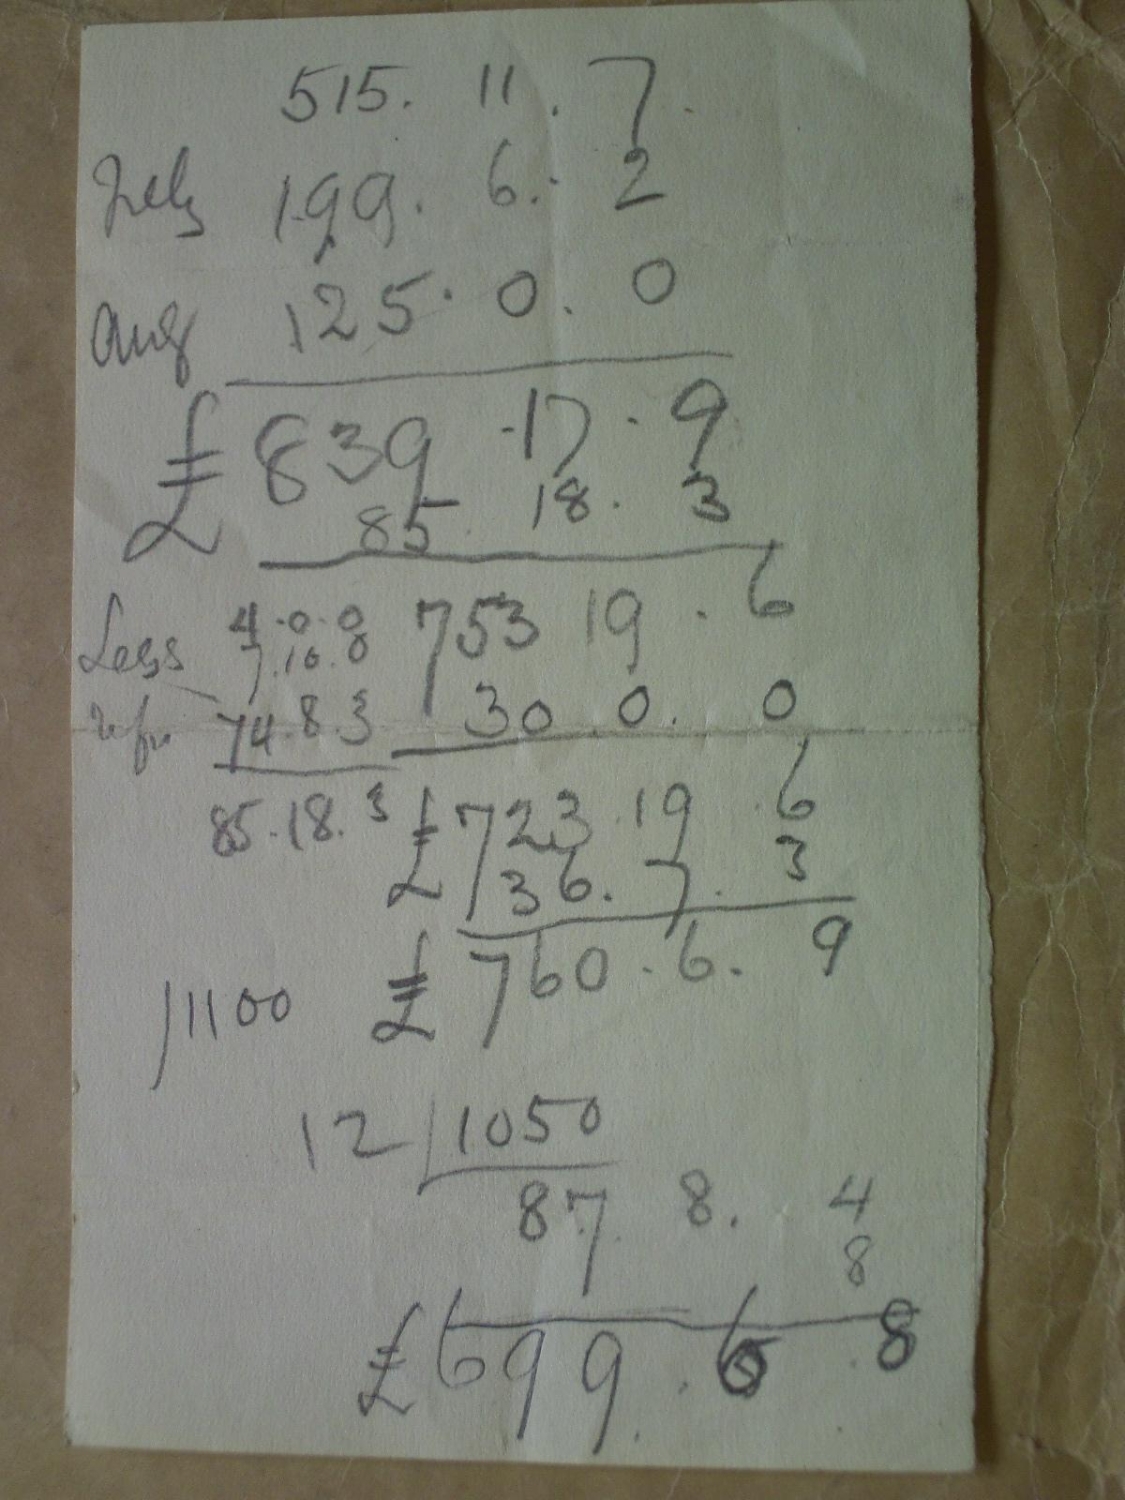 515. 11. 7.
July 199. 6. 2
Aug 125. 0. 0
£ 839. 17. 9
85. 18. 3
4. 0. 0 753 19. 6
Less 7. 10. 0
74. 8. 3 30 0. 0
85. 18. 3 £ 723. 19. 6
36. 7. 3
£ 760. 6. 9
/1100
12 | 1050
87 8. 4
8
£ 699. 6. 8